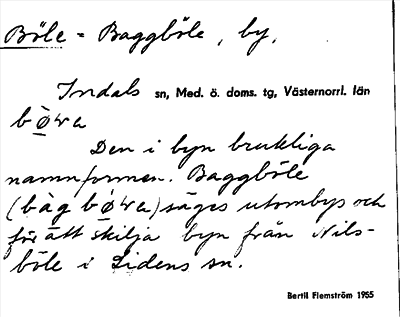 Böle = Baggböle, by,
Indals sn, Med. ö. doms. tg, Västernorrl. län
bø̀wa
Den i byn brukliga
namnformen. Baggböle
(bàg bø̀wa) säges utombys och
för att skilja byn från Nils-
böle i Lidens sn.
Bertil Flemström 1955